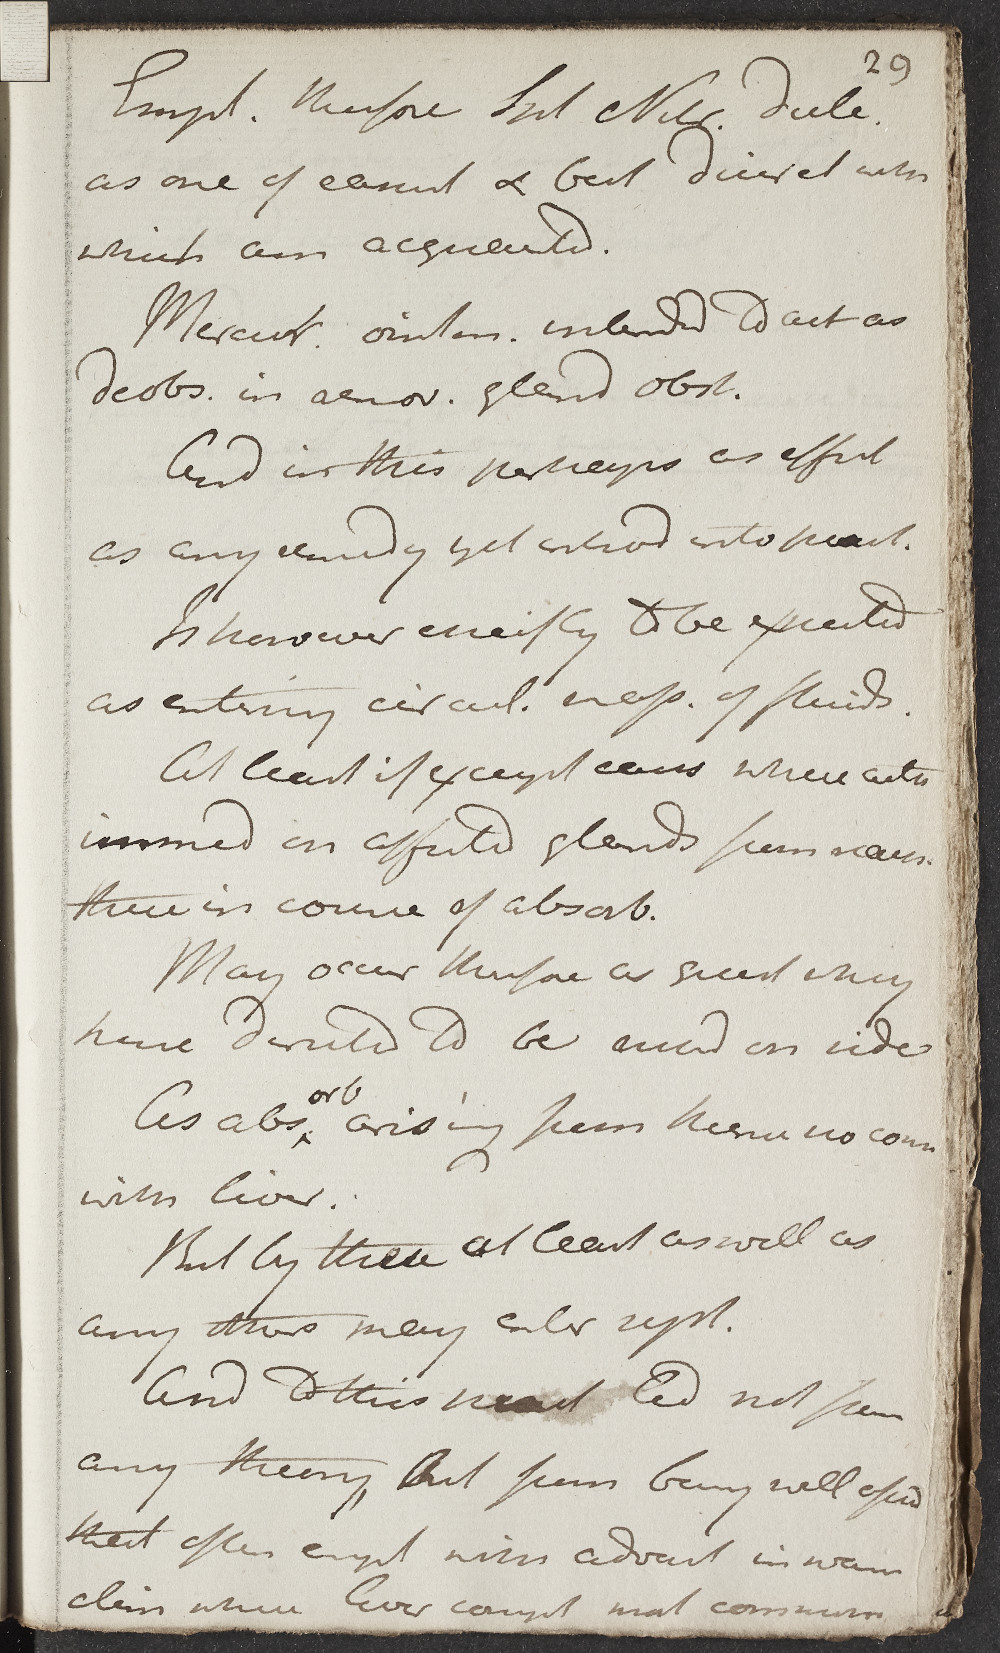 29
Empl. therefore Spt Nitr. dulc.
as one of easiest & best diuret with
which am acquented.
Mercur. ointm. intended to act as
deobs. in remov. gland obst.
And in this perhaps as effect
as any remedy yet introd into pract.
Is however chiefly to be expected
as entering circul. mass. of fluids.
At least if except cases where acts
immed on affected glands from near
these in course of absorb.
May occur therefore as quest why
have directed to be used on side
As absorb arising from hence no conn
with liver.
But by these at least as well as
any others may enter syst.
And to this pract led not from
any theory, but from being well assurd
that often empl with advant in warm
clim where liver compl most common